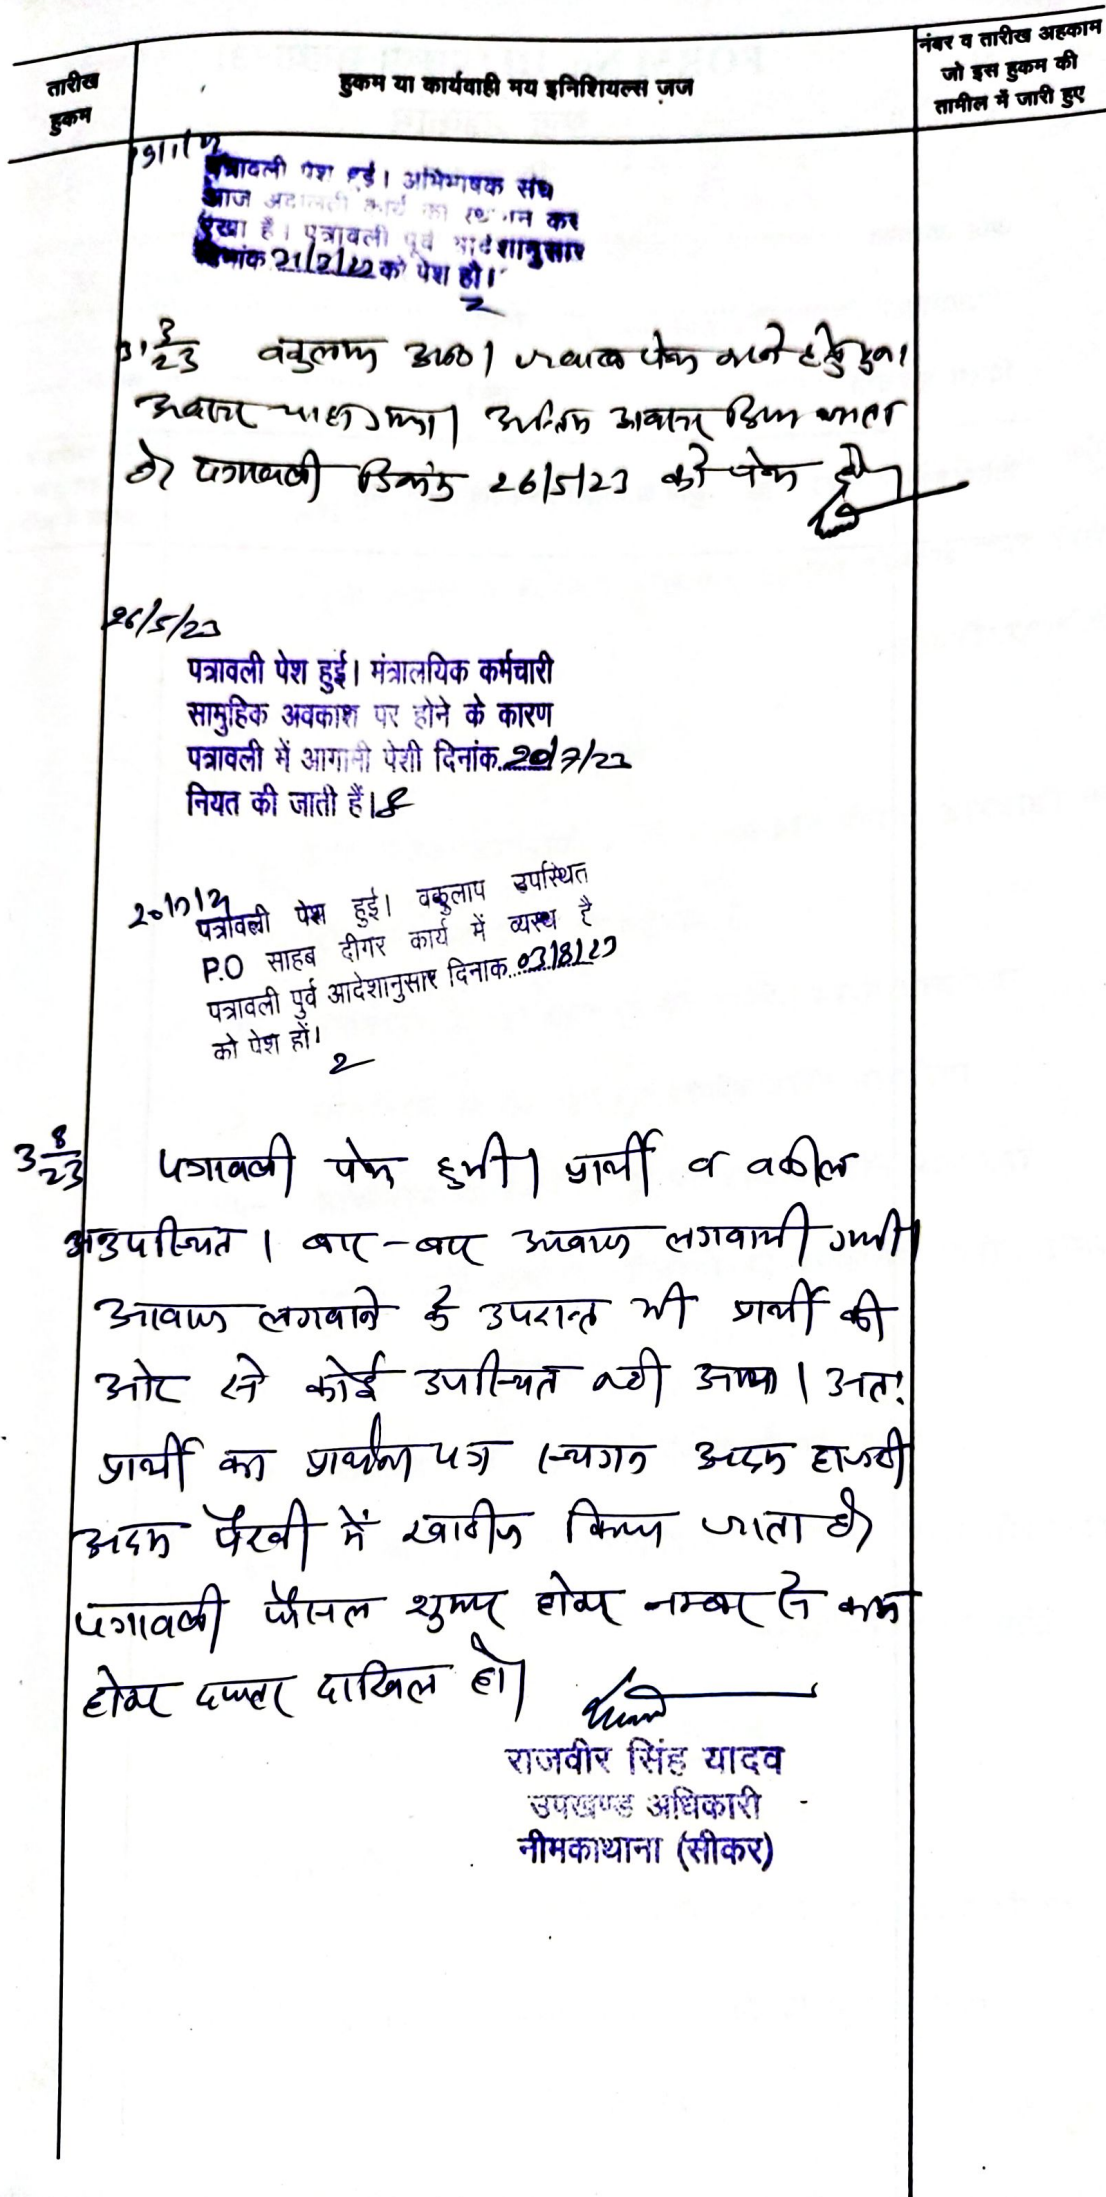 तारीख
हुकम
हुकम या कार्यवाही मय इनिशियल्स जज
नंबर व तारीख अहकाम
जो इस हुकम की
तामील में जारी हुए
पत्रावली पेश हुई। अभिभाषक संघ
आज अदालती कार्य का स्थगन कर
रखा है। पत्रावली पूर्व आदेशानुसार
दिनांक 21/2/22 को पेश हो।
31 3/23 वकुलाय उप०। जवाब पेश करने हेतु पुनः
अवसर चाहा गया। अन्तिम अवसर दिया जाता
है। पत्रावली दिनांक 26/5/23 को पेश हो।
26/5/23
पत्रावली पेश हुई। मंत्रालयिक कर्मचारी
सामुहिक अवकाश पर होने के कारण
पत्रावली में आगामी पेशी दिनांक 20/7/23
नियत की जाती हैं।
पत्रावली पेश हुई। वकुलाप उपस्थित
P.O साहब दीगर कार्य में व्यस्थ है
पत्रावली पुर्व आदेशानुसार दिनाक 03/8/23
को पेश हों।
3 8/23 पत्रावली पेश हुयी। प्रार्थी व वकील
अनुपस्थित। बार-बार आवाज लगवायी गयी।
आवाज लगवाने के उपरान्त भी प्रार्थी की
ओर से कोई उपस्थित नही आया। अत:
प्रार्थी का प्रार्थना पत्र स्थगन अदम हाजरी
अदम पैरवी में खारीज किया जाता है।
पत्रावली फैसल शुमार होकर नम्बर से कम
होकर दफ्तर दाखिल हो।
राजवीर सिंह यादव
उपखण्ड अधिकारी
नीमकाथाना (सीकर)